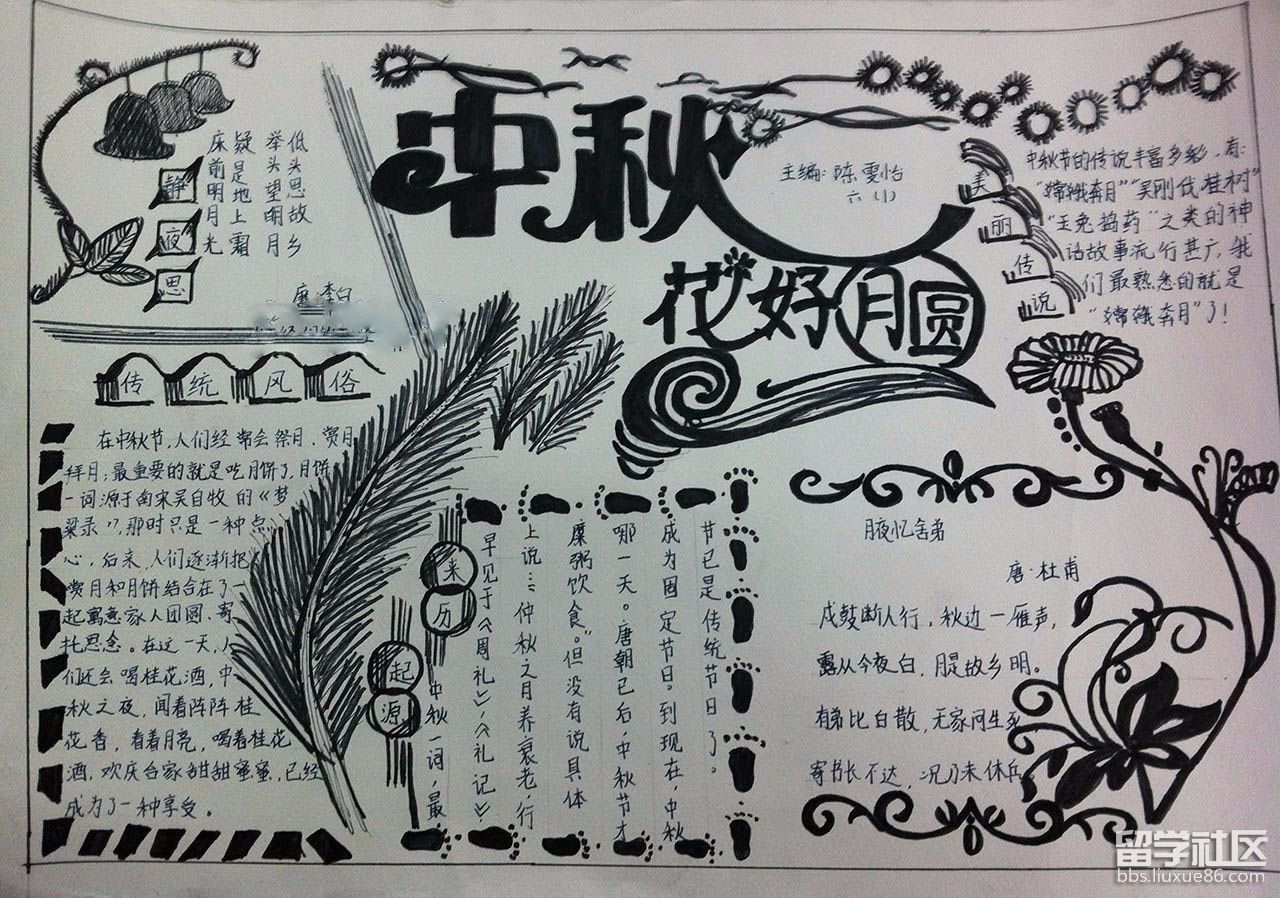 中秋
花好月圆
主编：陈雯怡
六（1）
静夜思
床前明月光
疑是地上霜
举头望明月
低头思故乡
唐·李白
美丽传说
中秋节的传说丰富多彩，有：
“嫦娥奔月”“吴刚伐桂树”
“玉兔捣药”之类的神
话故事流行甚广，我
们最熟悉的就是
“嫦娥奔月”了！
传统风俗
在中秋节，人们经常会祭月、赏月
拜月；最重要的就是吃月饼了，月饼
一词源于南宋吴自牧的《梦
梁录》，那时只是一种点
心，后来，人们逐渐把
赏月和月饼结合在了一
起寓意家人团圆、寄
托思念。在这一天，人
们还会喝桂花酒，中
秋之夜，闻着阵阵桂
花香，看着月亮，喝着桂花
酒，欢庆合家甜甜蜜蜜，已经
成为了一种享受。
来历
起源
中秋一词，最
早见于《周礼》，《礼记》
上说：“仲秋之月养衰老，行
糜粥饮食。”但没有说具体
哪一天。唐朝已后，中秋节才
成为固定节日。到现在，中秋
节已是传统节日了。
月夜忆舍弟
唐·杜甫
戍鼓断人行，秋边一雁声，
露从今夜白，月是故乡明。
有弟比白散，无家问生死
寄书长不达，况乃未休兵。
留学社区
bbs.liuxue86.com